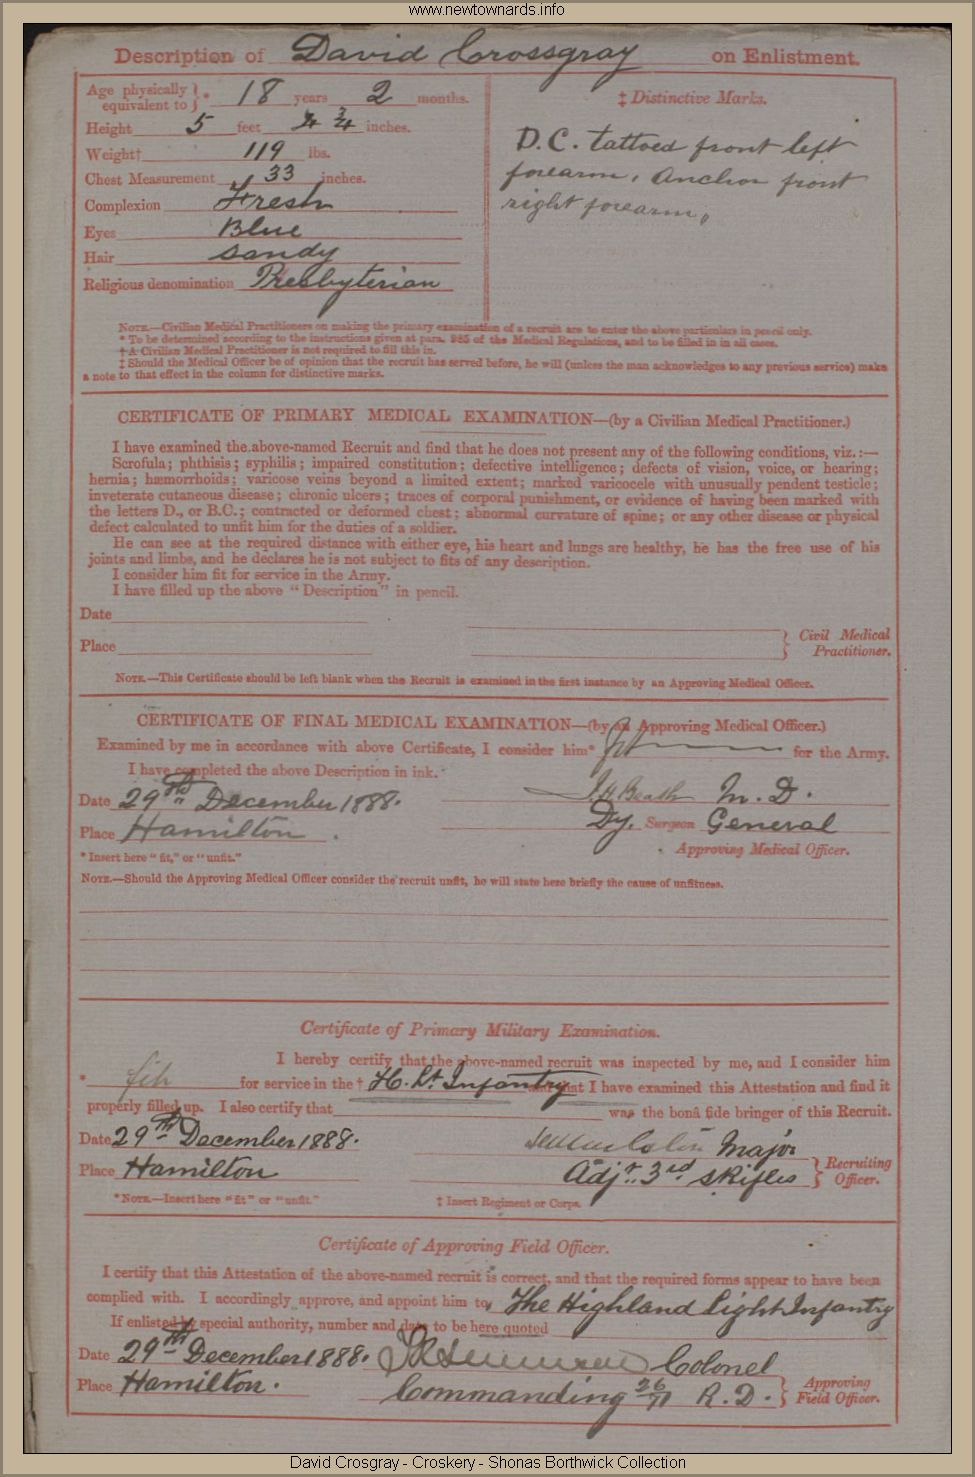 www.newtownards.info
Description of David Crossgray on Enlistment.
Age physically equivalent to } * 18 years 2 months.
Height 5 feet 4 3/4 inches.
Weight† 119 lbs.
Chest Measurement 33 inches.
Complexion Fresh
Eyes Blue
Hair Sandy
Religious denomination Presbyterian
‡ Distinctive Marks.
D.C. tattoed front left
forearm, Anchor front
right forearm,
NOTE.—Civilian Medical Practitioners on making the primary examination of a recruit are to enter the above particulars in pencil only.
* To be determined according to the instructions given at para. 985 of the Medical Regulations, and to be filled in in all cases.
† A Civilian Medical Practitioner is not required to fill this in.
‡ Should the Medical Officer be of opinion that the recruit has served before, he will (unless the man acknowledges to any previous service) make
a note to that effect in the column for distinctive marks.
CERTIFICATE OF PRIMARY MEDICAL EXAMINATION—(by a Civilian Medical Practitioner.)
I have examined the above-named Recruit and find that he does not present any of the following conditions, viz.:—
Scrofula; phthisis; syphilis; impaired constitution; defective intelligence; defects of vision, voice, or hearing;
hernia; hæmorrhoids; varicose veins beyond a limited extent; marked varicocele with unusually pendent testicle;
inveterate cutaneous disease; chronic ulcers; traces of corporal punishment, or evidence of having been marked with
the letters D., or B.C.; contracted or deformed chest; abnormal curvature of spine; or any other disease or physical
defect calculated to unfit him for the duties of a soldier.
He can see at the required distance with either eye, his heart and lungs are healthy, he has the free use of his
joints and limbs, and he declares he is not subject to fits of any description.
I consider him fit for service in the Army.
I have filled up the above "Description" in pencil.
Date
Place
Civil Medical
Practitioner.
NOTE.—This Certificate should be left blank when the Recruit is examined in the first instance by an Approving Medical Officer.
CERTIFICATE OF FINAL MEDICAL EXAMINATION—(by an Approving Medical Officer.)
Examined by me in accordance with above Certificate, I consider him* fit for the Army.
I have completed the above Description in ink.
Date 29th December 1888. M.D.
Place Hamilton. Dy. Surgeon General
Approving Medical Officer.
* Insert here "fit," or "unfit."
NOTE.—Should the Approving Medical Officer consider the recruit unfit, he will state here briefly the cause of unfitness.
Certificate of Primary Military Examination.
I hereby certify that the above-named recruit was inspected by me, and I consider him
* fit for service in the † H. Lt Infantry and that I have examined this Attestation and find it
properly filled up. I also certify that was the bonâ fide bringer of this Recruit.
Date 29th December 1888. Major
Place Hamilton Adjt. 3rd S Rifles
Recruiting
Officer.
* NOTE.—Insert here "fit" or "unfit."
‡ Insert Regiment or Corps.
Certificate of Approving Field Officer.
I certify that this Attestation of the above-named recruit is correct, and that the required forms appear to have been
complied with. I accordingly approve, and appoint him to The Highland Light Infantry
If enlisted by special authority, number and date to be here quoted
Date 29th December 1888. Colonel
Place Hamilton. Commanding 26/71 R.D.
Approving
Field Officer.
David Crosgray - Croskery - Shonas Borthwick Collection